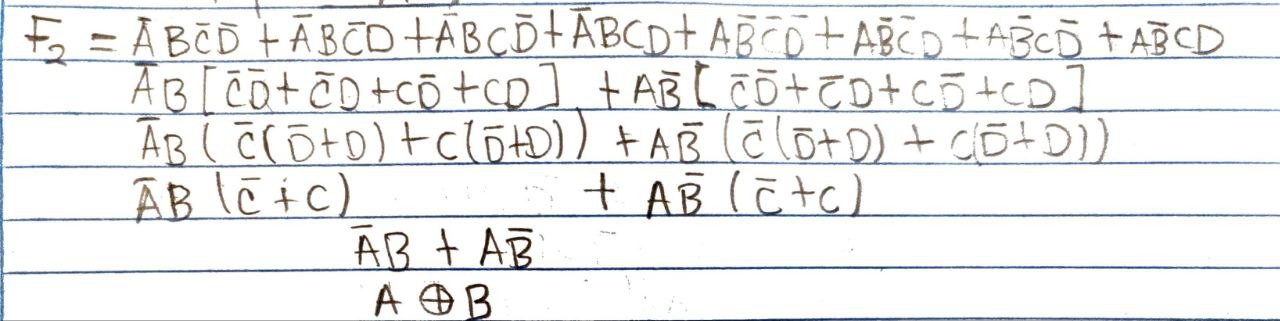 F₂ = A̅BC̅D̅ + A̅BC̅D + A̅BCD̅ + A̅BCD + AB̅C̅D̅ + AB̅C̅D + AB̅CD̅ + AB̅CD
A̅B[C̅D̅ + C̅D + CD̅ + CD] + AB̅[C̅D̅ + C̅D + CD̅ + CD]
A̅B(C̅(D̅+D) + C(D̅+D)) + AB̅(C̅(D̅+D) + C(D̅+D))
A̅B(C̅+C) + AB̅(C̅+C)
A̅B + AB̅
A ⊕ B